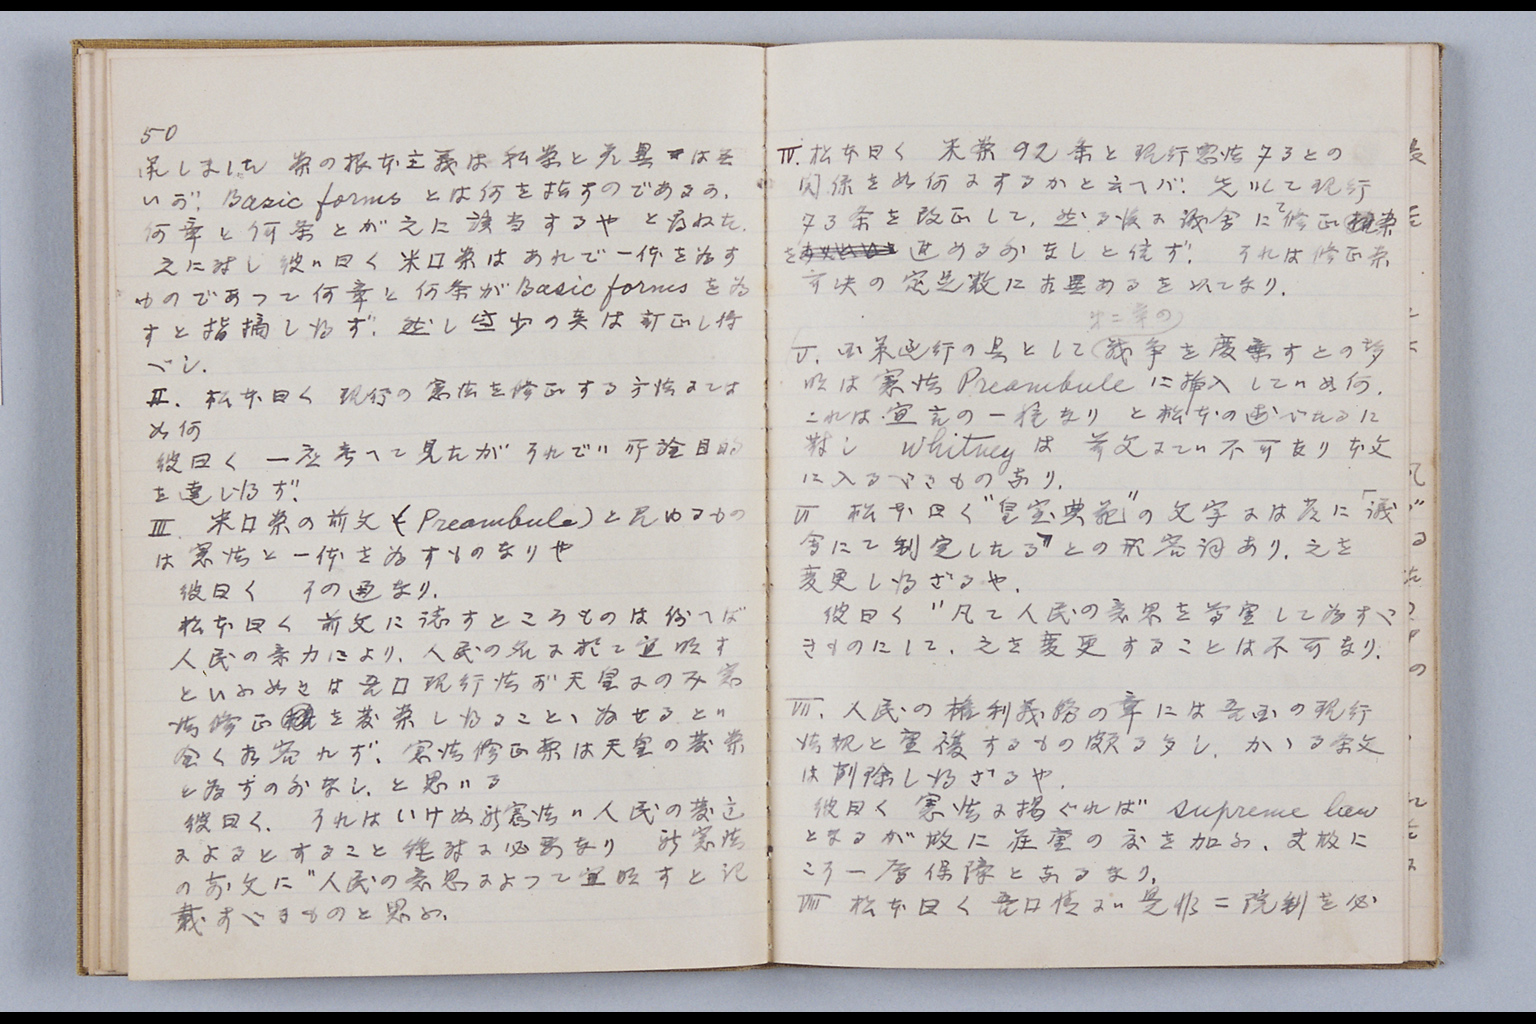 50
案の根本主義は私案と
いが. Basic forms とは何を指すのであるか.
何章と何条とが之に該当するや と尋ねた.
之に対し彼ハ曰く 米口案はあれで一体を為す
ものであつて何章と何条が Basic forms を為
すと指摘し得ず. 然し 少の 訂正し得
べし.
II. 松本曰く 現行の憲法を修正する方法にては
如何
彼曰く 一応考へて見たがそれでハ所詮目的
を達し得ず.
III. 米口案の前文 (Preambule) と見ゆるもの
は憲法と一体を為すものなりや
彼曰く その通なり.
松本曰く 前文に ところものは例へば
人民の より. 人民の名に於て宣明す
といふ如きは吾口現行法が天皇にのみ憲
法修正 を発案し得ること、為せると
全く相容れず. 憲法修正案は天皇の発案
と為すの外なし、と思ハる
彼曰く. それはいけぬ新憲法ハ人民の発意
によるとすること絶対に必要なり 新憲法
の前文に "人民の意思によつて宣明すと記
載すべきものと思ふ.
IV. 松本曰く 米案92条と現行憲法73との
関係を如何にするかと云へバ. 先ハして現行
73条を改正して, 然る後に議会に修正案
を 進める外なしと信ず. それは修正案
可決の定足数に相異あるを以てなり.
第二章の
V. 国策遂行の具として戦争を廃棄すとの
明は憲法 Preambule に挿入してハ如何.
これは宣言の一種なり と松本の述べたるに
対し Whitney は 前文にてハ不可なり本文
に入るべきものなり.
VI 松本曰く "皇室典範" の文字には 「議
会にて制定したる」との形容詞あり. 之を
変更し得ざるや.
彼曰く "凡て人民の意思を して為すべ
きものにして, 之を変更することは不可なり.
VII. 人民の権利義務の章には吾国の現行
法規と重複するもの頗る多し. かゝる条文
は削除し得ざるや.
彼曰く 憲法に掲ぐれば supreme law
となるが故に 加ふ. 故に
一層保障とあるなり.
VIII 松本曰く 吾口情でハ是非二院制を必